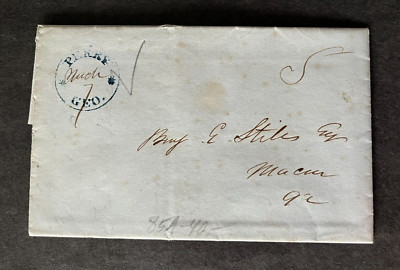 PERRY
Mch
7
GEO.
5
Benj E. Stiles Esq
Macon
Ga